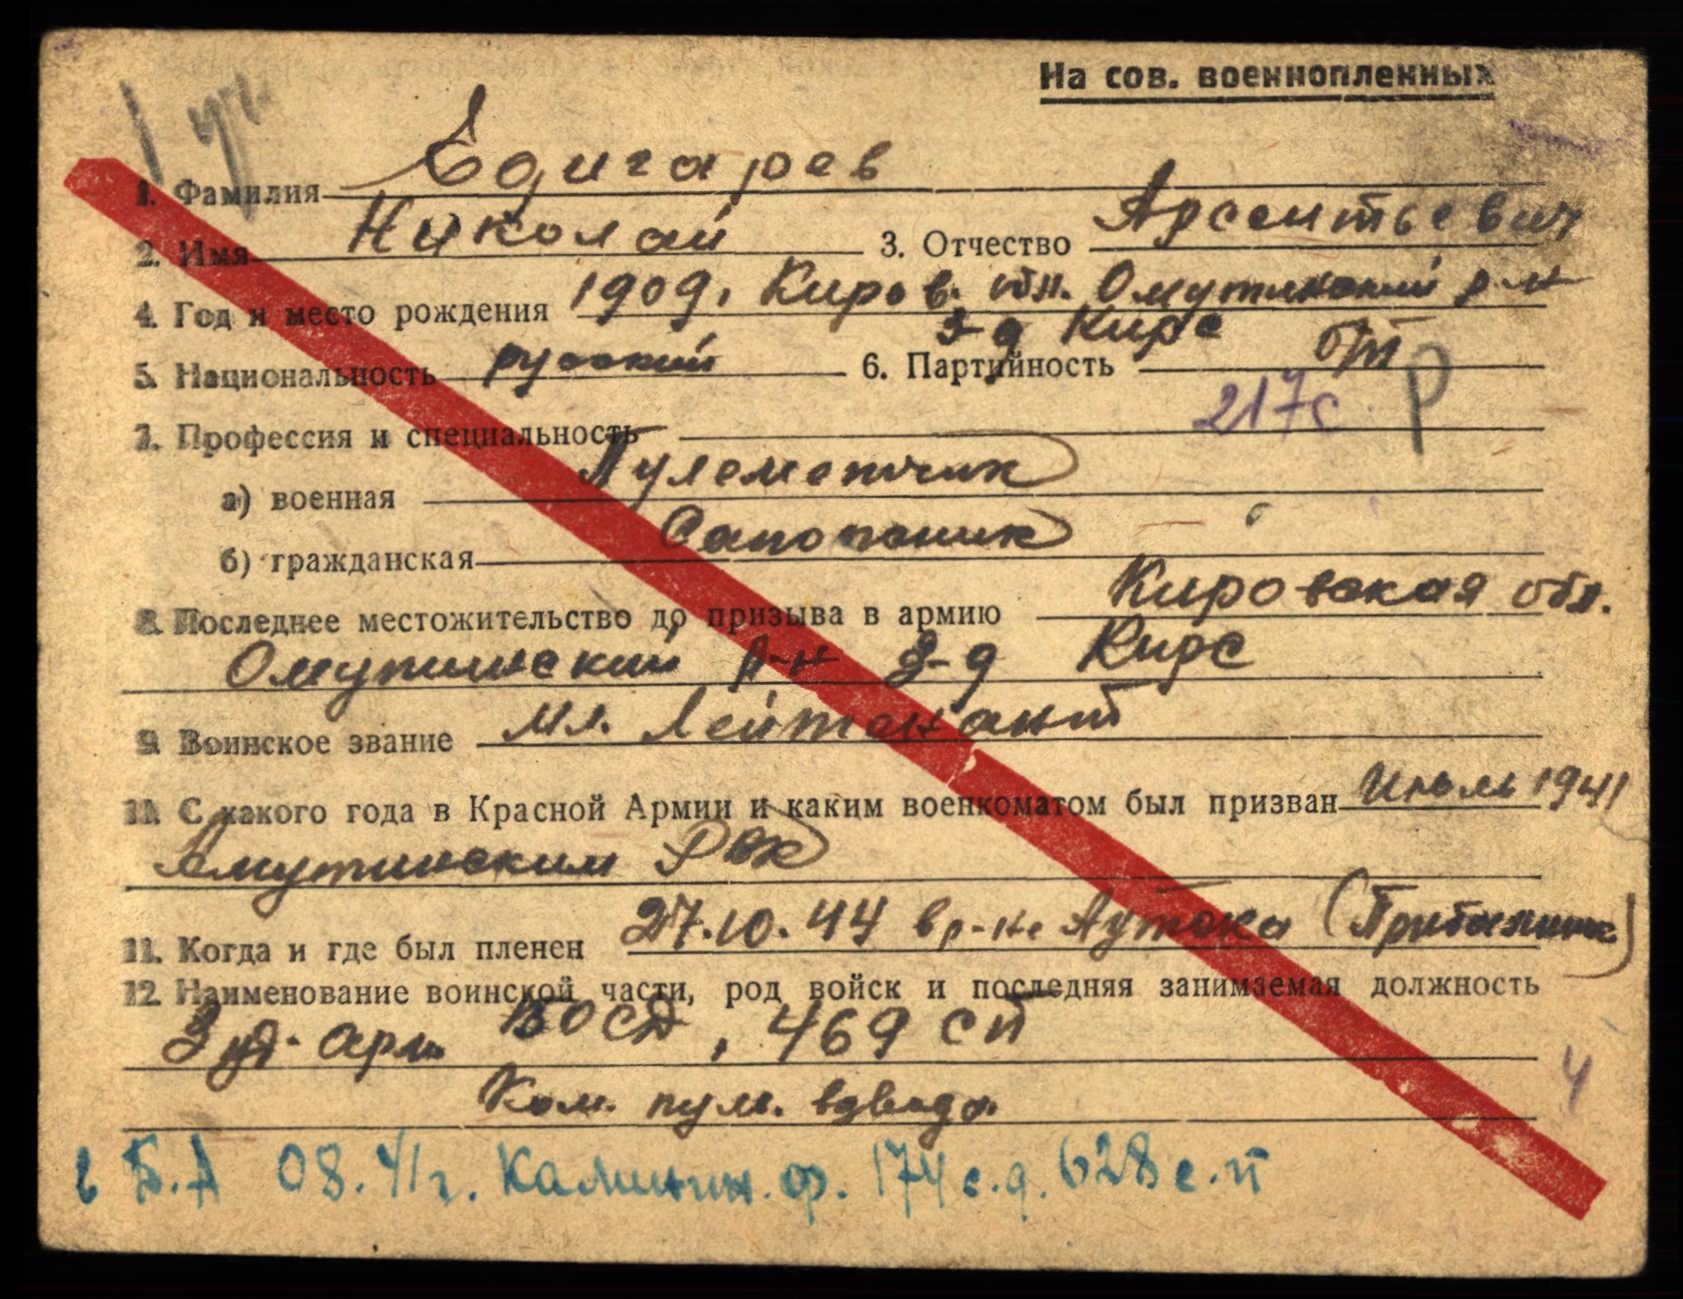 На сов. военнопленных
1. Фамилия Едигарев
2. Имя Николай 3. Отчество Арсентьевич
4. Год и место рождения 1909, Киров. обл. Омутнинский р-н
з-д Кирс
5. Национальность русский 6. Партийность б/п
217с. Р
7. Профессия и специальность
а) военная Пулеметчик
б) гражданская Сапожник
8. Последнее местожительство до призыва в армию Кировская обл.
Омутнинский р-н з-д Кирс
9. Воинское звание мл. Лейтенант
10. С какого года в Красной Армии и каким военкоматом был призван Июль 1941
Омутнинским РВК
11. Когда и где был пленен 27.10.44 в р-не (Прибалтика)
12. Наименование воинской части, род войск и последняя занимаемая должность
3 уд. арм. 150 СД, 469 СП
4
Ком. пул. взвода
в Б.Д 08.41г. Калинин. ф. 174 с.д. 628 с.п